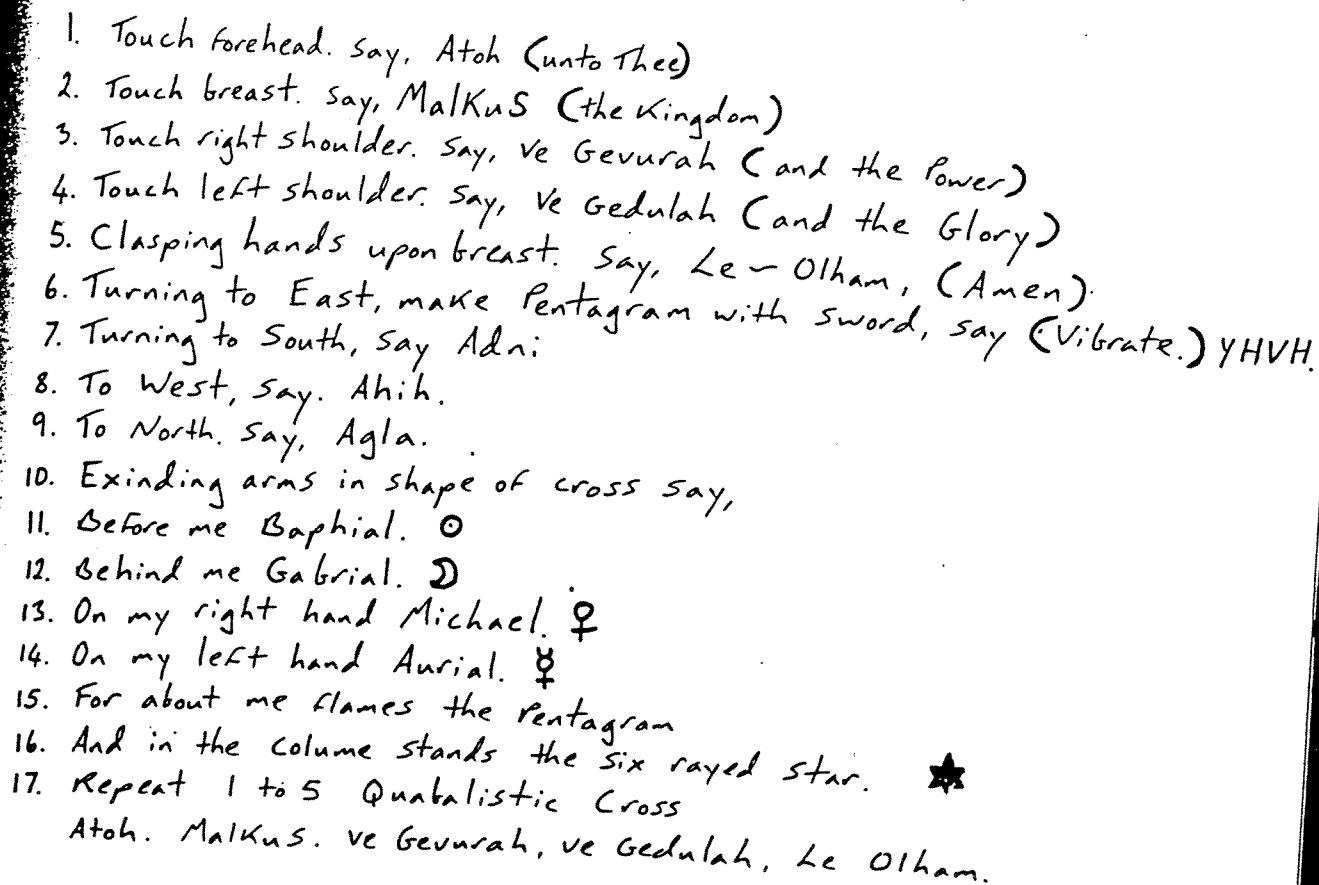 1. Touch forehead. Say, Atoh (unto Thee)
2. Touch breast. Say, MalKuS (the Kingdom)
3. Touch right shoulder. Say, ve Gevurah (and the Power)
4. Touch left shoulder. Say, Ve Gedulah (and the Glory)
5. Clasping hands upon breast. Say, Le-Olham, (Amen).
6. Turning to East, make Pentagram with sword, say (Vibrate.) YHVH.
7. Turning to South, say Adni
8. To West, say. Ahih.
9. To North. Say, Agla.
10. Exinding arms in shape of cross say,
11. Before me Baphial. ☉
12. Behind me Gabrial. ☽
13. On my right hand Michael. ♀
14. On my left hand Aurial. ☿
15. For about me flames the Pentagram
16. And in the Colume stands the six rayed star. ✶
17. Repeat 1 to 5 Quabalistic Cross
Atoh. MalKuS. ve Gevurah, ve Gedulah, Le Olham.